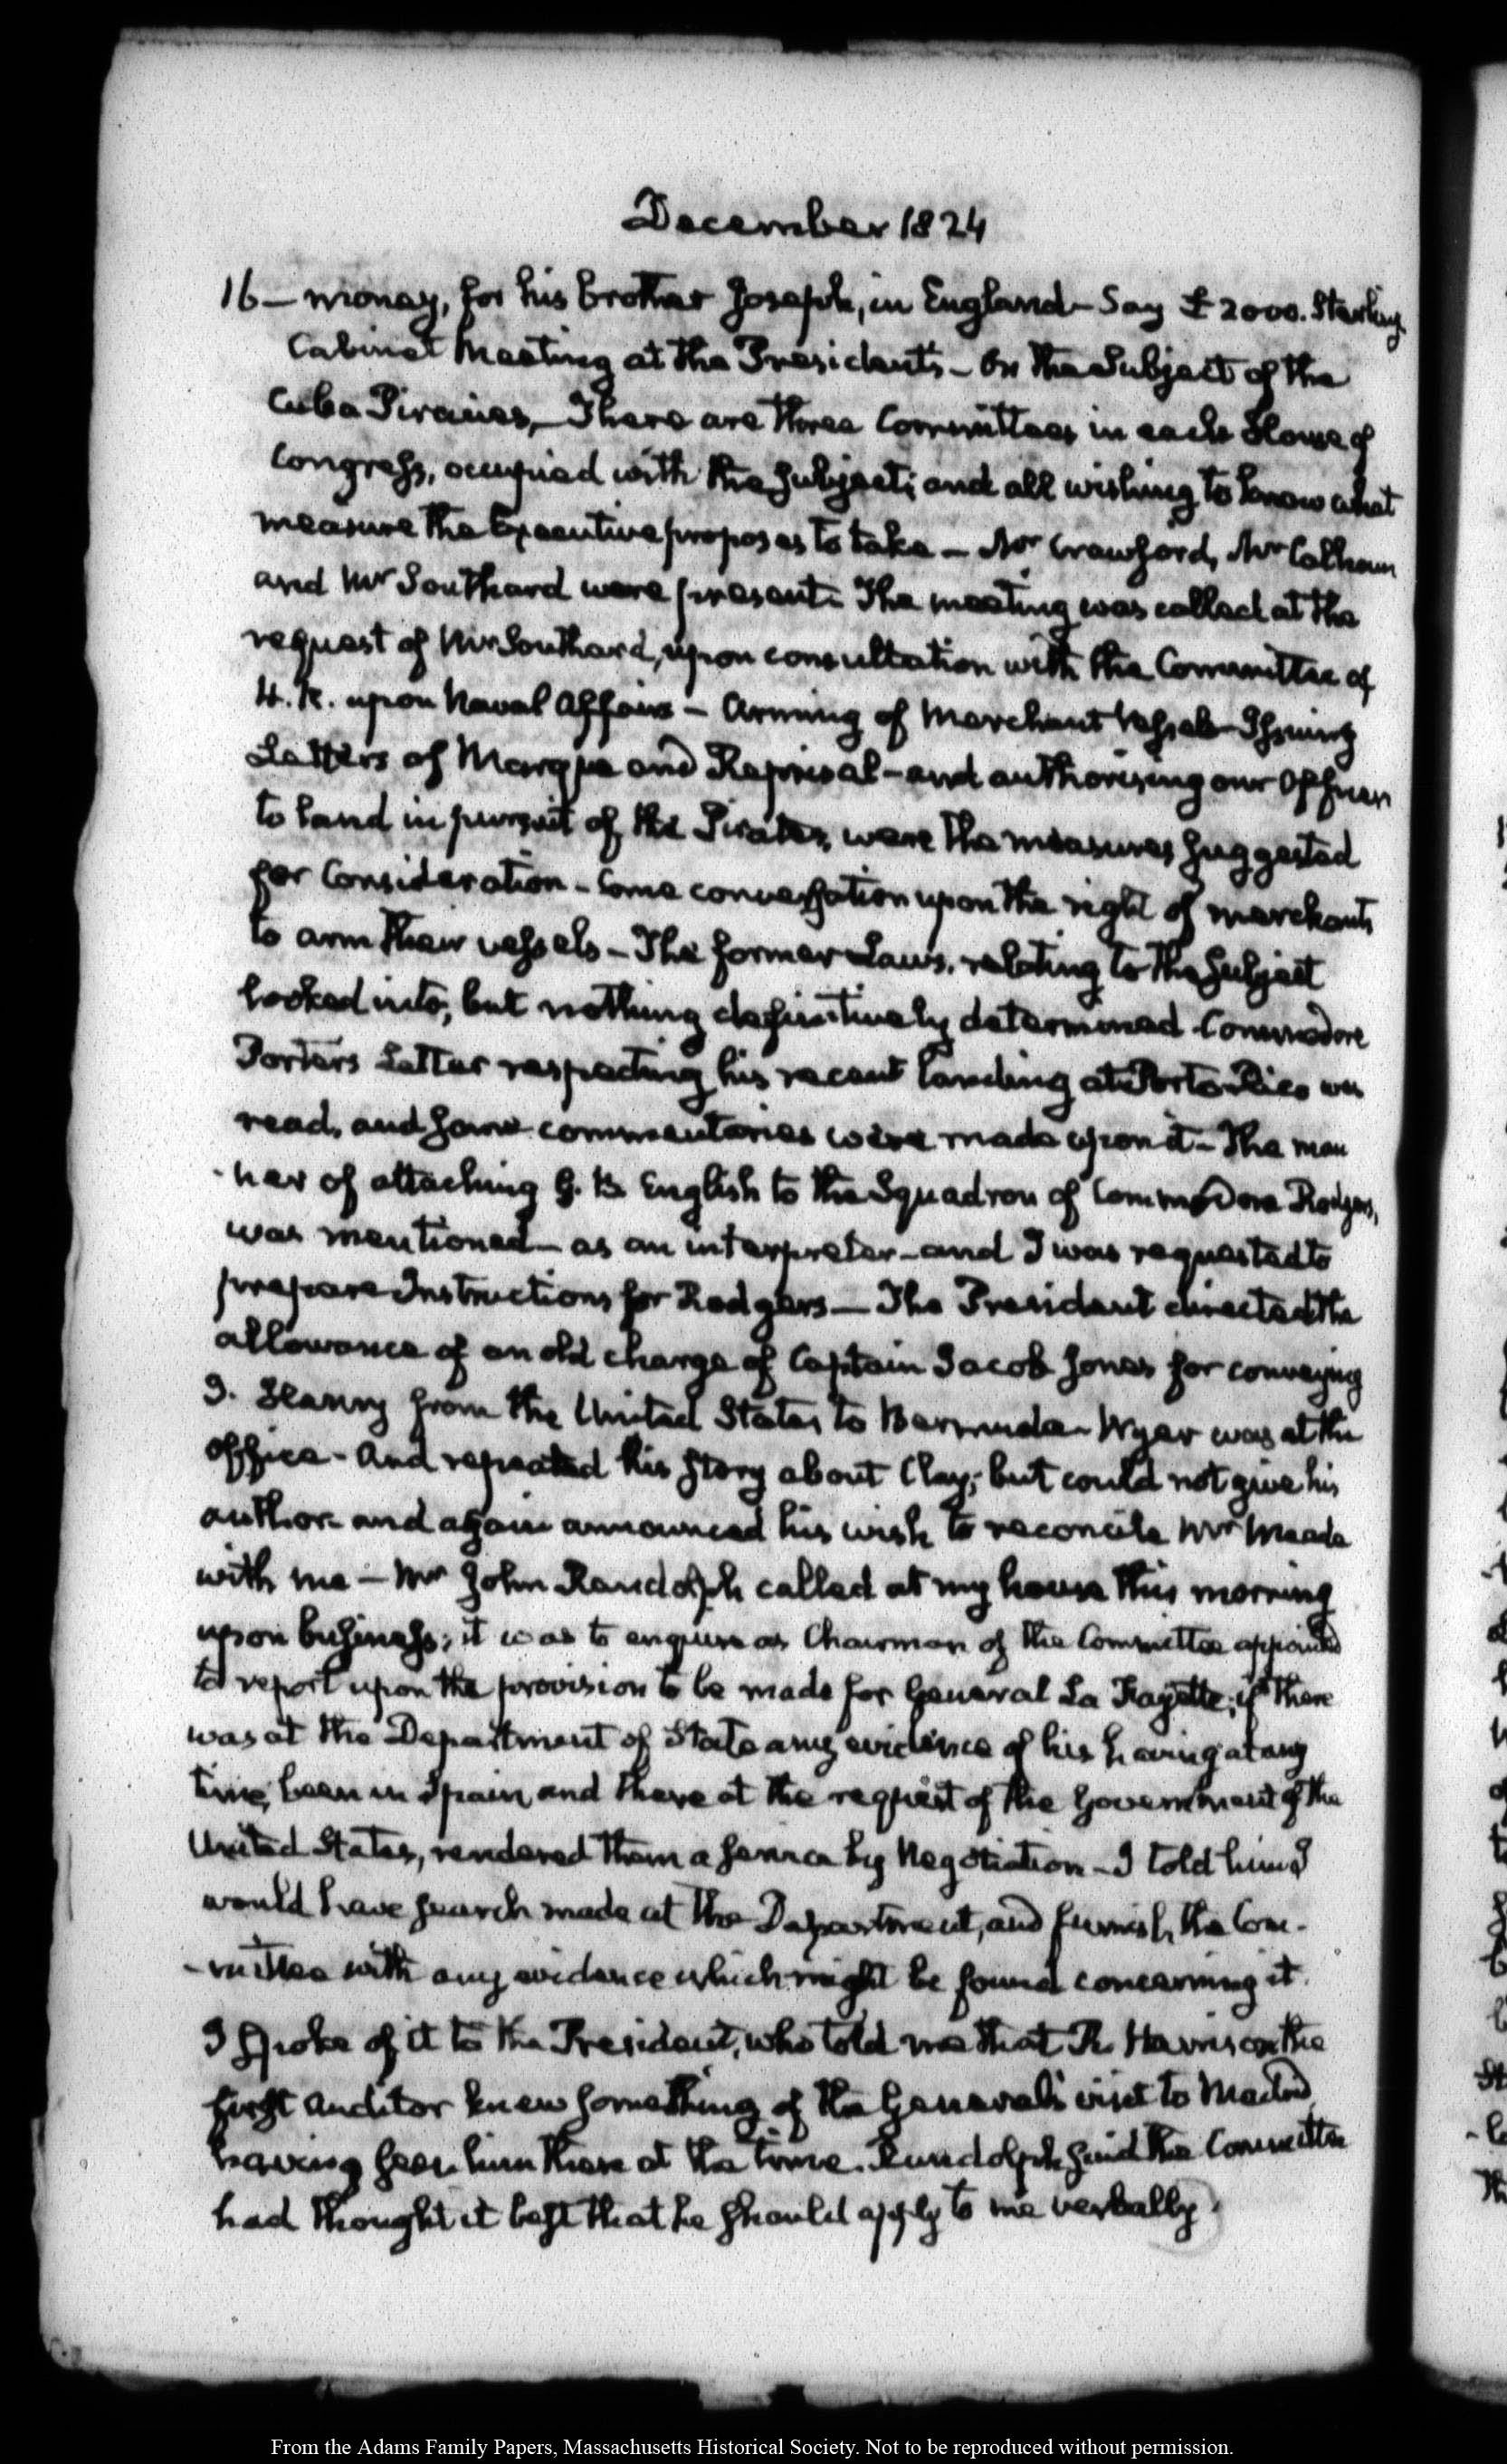 December 1824
16 — money, for his brother Joseph, in England — Say £2000. Sterling.
Cabinet Meeting at the Presidents — On the Subject of the
Cuba Piracies, — There are three Committees in each House of
Congress, occupied with the subject; and all wishing to know what
measure the Executive proposes to take — Mr Crawford, Mr Calhoun
and Mr Southard were present. The meeting was called at the
request of Mr Southard, upon consultation with the Committee of
H. R. upon Naval Affairs — Arming of Merchant Vessels — Issuing
Letters of Marque and Reprisal — and authorising our Officers
to land in pursuit of the Pirates, were the measures suggested
for Consideration — Some conversation upon the right of merchants
to arm their vessels — The former Laws, relating to the subject
looked into; but nothing definitively determined. Commodore
Porters Letter respecting his recent landing at Porto Rico was
read, and some commentaries were made upon it — The man
-ner of attaching G. B. English to the Squadron of Commodore Rodgers,
was mentioned — as an interpreter — and I was requested to
prepare Instructions for Rodgers — The President directed the
allowance of an old charge of Captain Jacob Jones for conveying
from the United States to Bermuda — Wyer was at the
Office — And repeated his story about Clay; but could not give his
author — and again announced his wish to reconcile Mr Meade
with me — Mr John Randolph called at my house this morning
upon business; it was to enquire as Chairman of the Committee appointed
to report upon the provision to be made for General La Fayette; if there
was at the Department of State any evidence of his having at any
time, been in Spain, and there at the request of the Government of the
United States, rendered them a service by Negotiation — I told him I
would have search made at the Department, and furnish the Com-
-mittee with any evidence which might be found concerning it.
I spoke of it to the President, who told me that R. Harrison the
first Auditor knew something of the General's visit to Madrid,
having seen him there at the time. Randolph said the Committee
had thought it best that he should apply to me verbally.
From the Adams Family Papers, Massachusetts Historical Society. Not to be reproduced without permission.